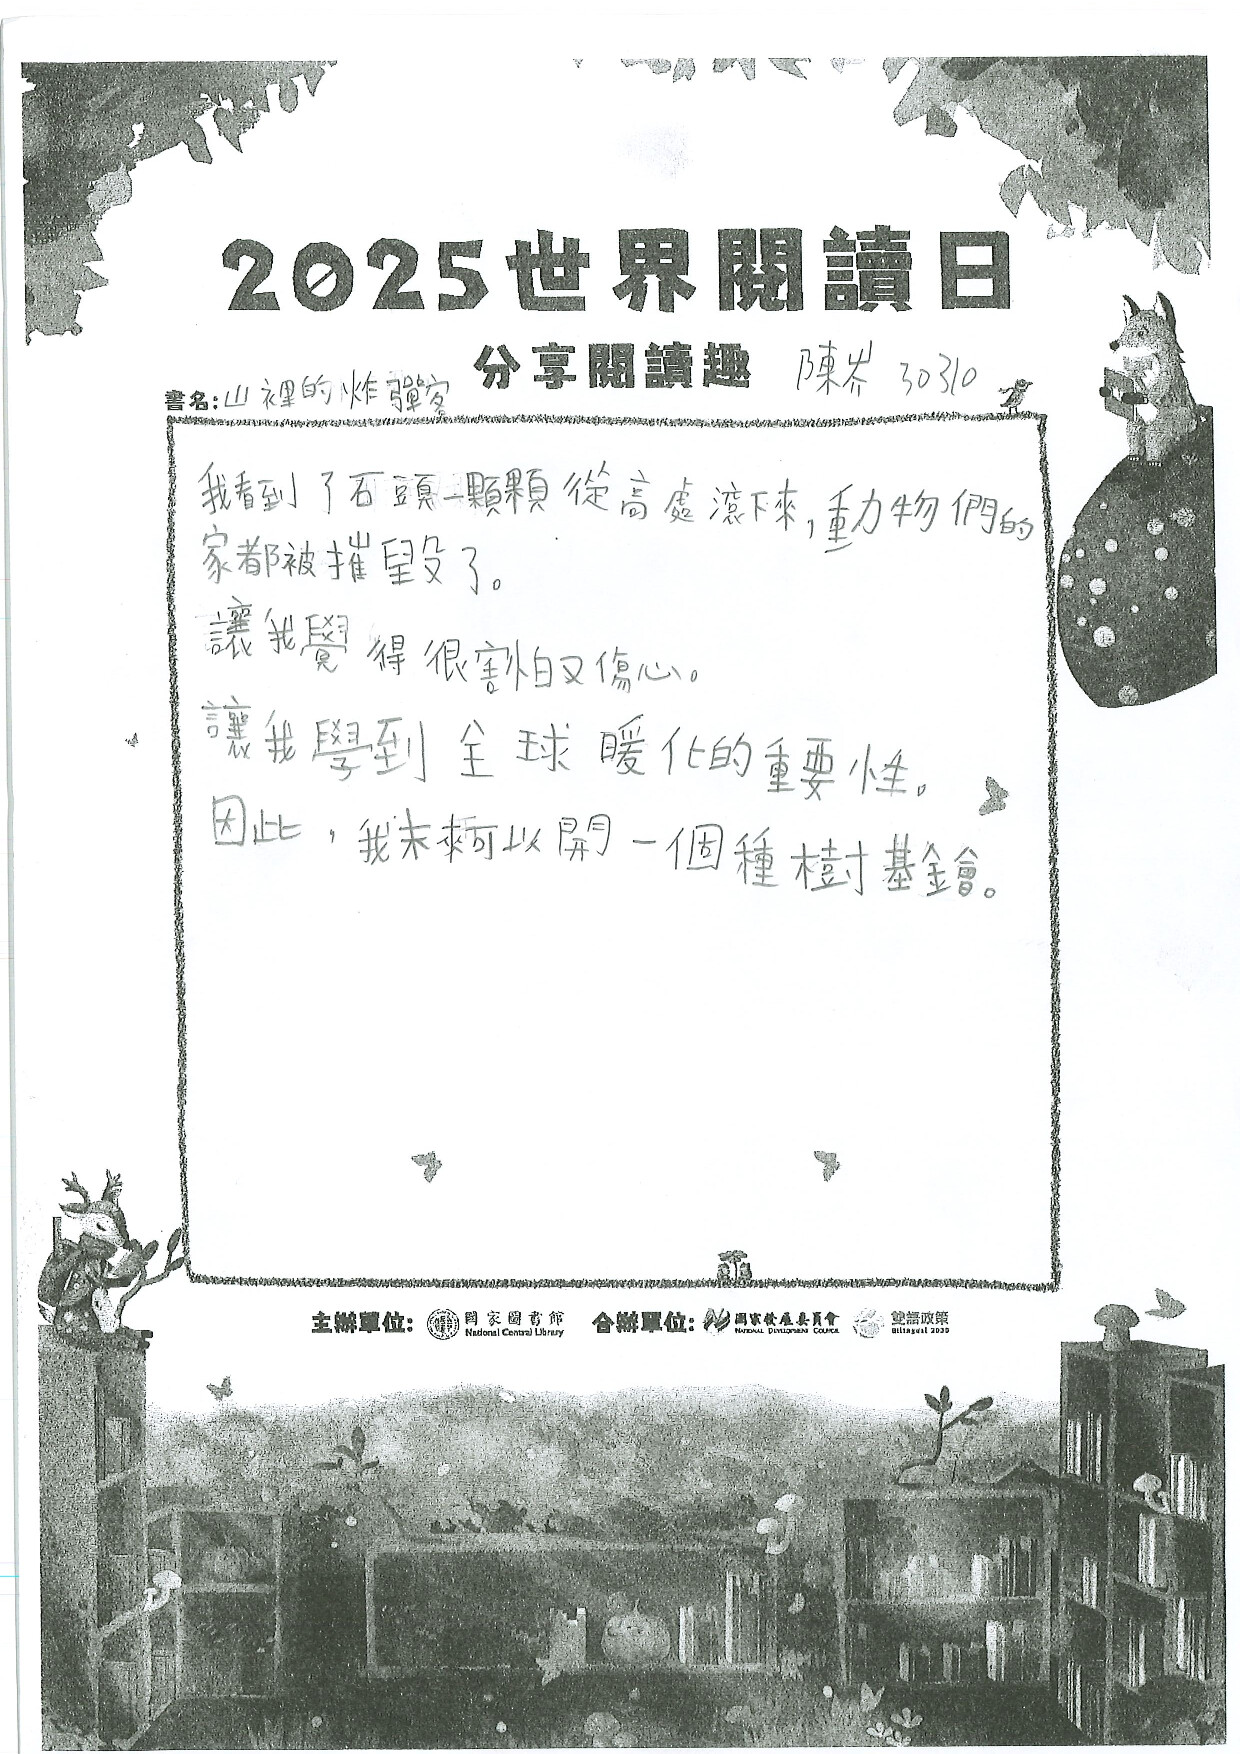 2025世界閱讀日
分享閱讀趣 陳岑 30310
書名:山裡的炸彈客
我看到了石頭一顆顆從高處滾下來,動物們的
家都被摧毀了。
讓我覺得很害怕又傷心。
讓我學到全球暖化的重要性。
因此,我未來可以開一個種樹基金會。
主辦單位: 國家圖書館 National Central Library 合辦單位: 國家發展委員會 NATIONAL DEVELOPMENT COUNCIL 雙語政策 Bilingual 2030